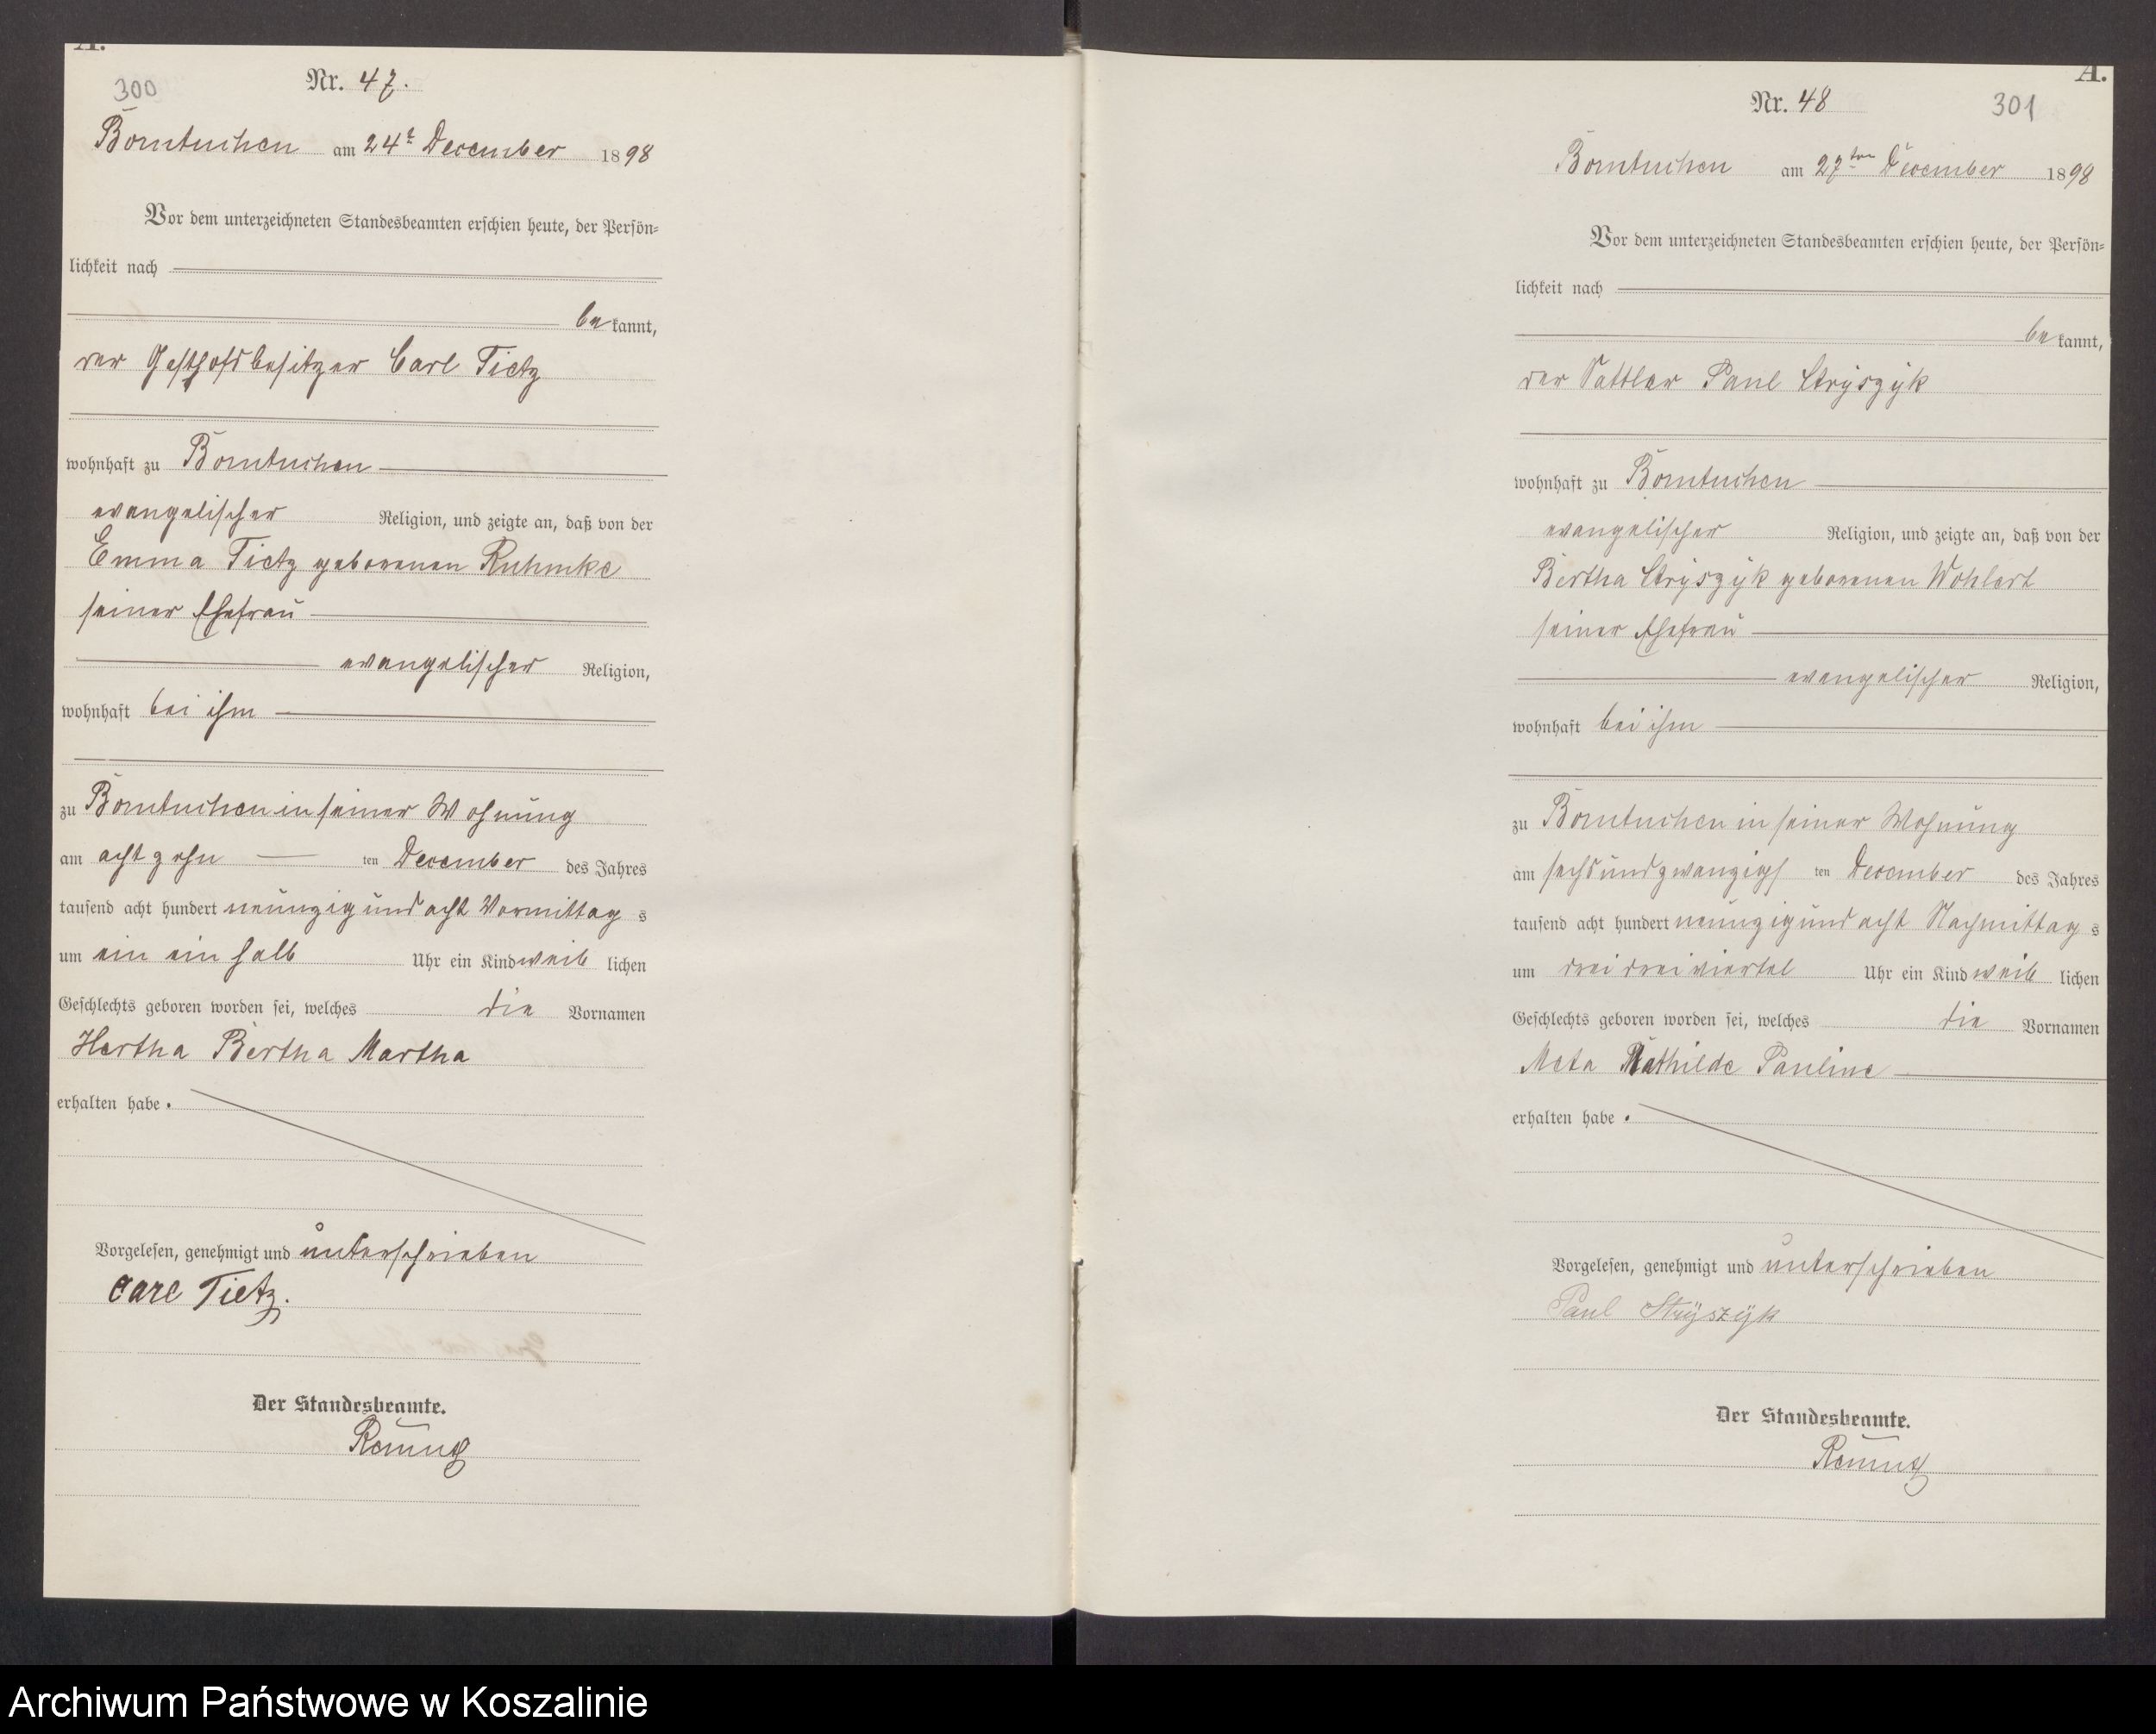 A.
300
Nr. 47.
Borntuchen am 24t December 1898
Vor dem unterzeichneten Standesbeamten erschien heute, der Persön-
lichkeit nach
be kannt,
der Gasthofsbesitzer Carl Tietz
wohnhaft zu Borntuchen
evangelischer Religion, und zeigte an, daß von der
Emma Tietz geborenen Ruhmke
seiner Ehefrau
evangelischer Religion,
wohnhaft bei ihm
zu Borntuchen in seiner Wohnung
am achtzehn ten December des Jahres
tausend acht hundert neunzig und acht Vormittag s
um ein ein halb Uhr ein Kind weib lichen
Geschlechts geboren worden sei, welches die Vornamen
Hertha Bertha Martha
erhalten habe.
Vorgelesen, genehmigt und unterschrieben
Carl Tietz.
Der Standesbeamte.
A.
Nr. 48
301
Borntuchen am 27ten December 1898
Vor dem unterzeichneten Standesbeamten erschien heute, der Persön-
lichkeit nach
be kannt,
der Sattler Paul Stryszyk
wohnhaft zu Borntuchen
evangelischer Religion, und zeigte an, daß von der
Bertha Stryszyk geborenen Wohlert
seiner Ehefrau
evangelischer Religion,
wohnhaft bei ihm
zu Borntuchen in seiner Wohnung
am sechsundzwanzigs ten December des Jahres
tausend acht hundert neunzig und acht Nachmittag s
um drei dreiviertel Uhr ein Kind weib lichen
Geschlechts geboren worden sei, welches die Vornamen
Meta Mathilde Pauline
erhalten habe.
Vorgelesen, genehmigt und unterschrieben
Paul Stryszyk
Der Standesbeamte.
Archiwum Państwowe w Koszalinie